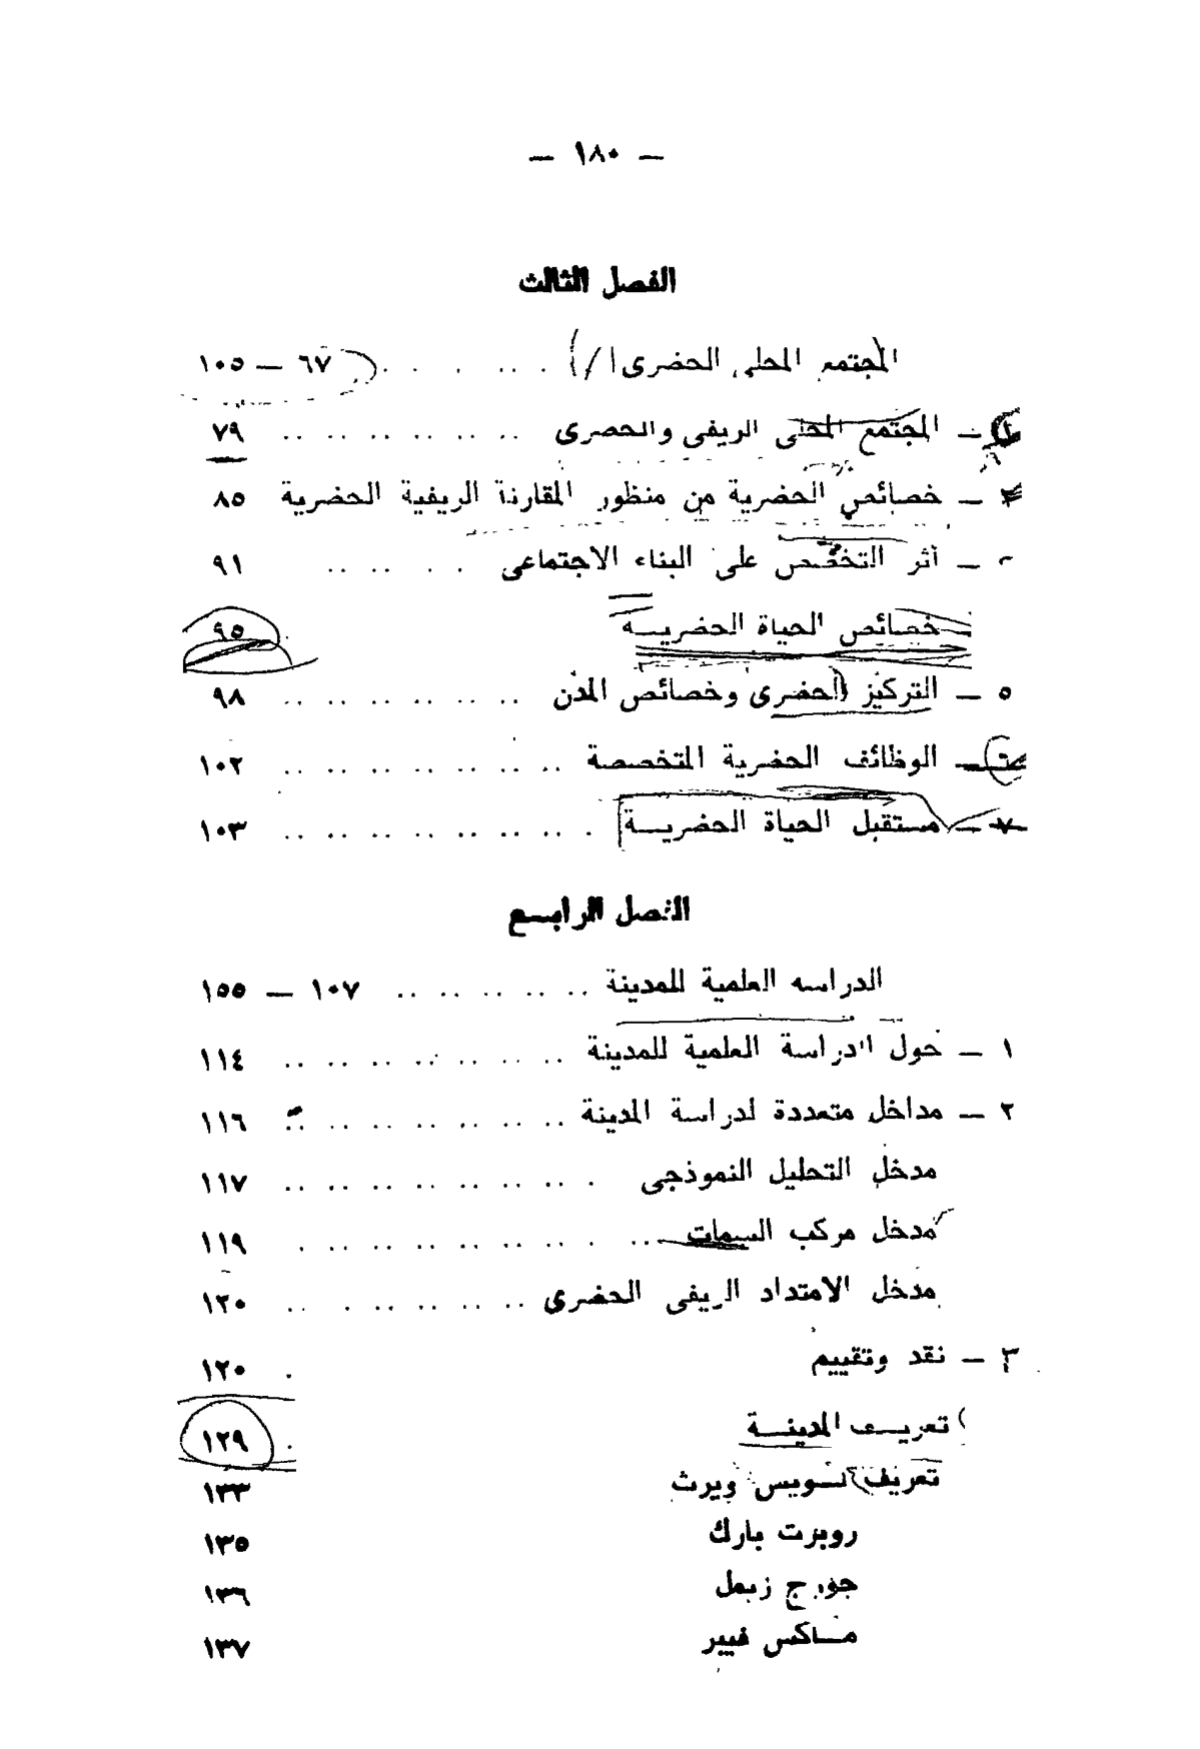 — ١٨٠ —
الفصل الثالث
المجتمع المحلى الحضرى . . . . . . . ٦٧ — ١٠٥
١ — المجتمع المحلى الريفى والحضرى .. .. .. .. .. .. ٧٩
٢ — خصائص الحضرية من منظور المقارنة الريفية الحضرية ٨٥
— أثر التخصص على البناء الاجتماعى . .. .. .. ٩١
— خصائص الحياة الحضريــة ٩٥
٥ — التركيز الحضرى وخصائص المدن .. .. .. .. .. .. ٩٨
٦ — الوظائف الحضرية المتخصصة .. .. .. .. .. .. .. ١٠٢
٧ — مستقبل الحياة الحضريــة . .. .. .. .. .. .. .. ١٠٣
الفصل الرابــع
الدراسه العلمية للمدينة .. .. .. .. .. ١٠٧ — ١٥٥
١ — حول الدراسة العلمية للمدينة .. .. .. .. .. .. .. ١١٤
٢ — مداخل متعددة لدراسة المدينة .. .. .. .. .. .. .. ١١٦
مدخل التحليل النموذجى . .. .. .. .. .. .. .. ١١٧
مدخل مركب السمات .. . .. .. .. .. .. .. . ١١٩
مدخل الامتداد الريفى الحضرى .. .. .. .. . .. ١٢٠
٣ — نقد وتقييم . ١٢٠
تعريــف المدينــة . ١٢٩
تعريف لــويس ويرث ١٣٣
روبرت بارك ١٣٥
جورج زيمل ١٣٦
مــاكس فيبر ١٣٧